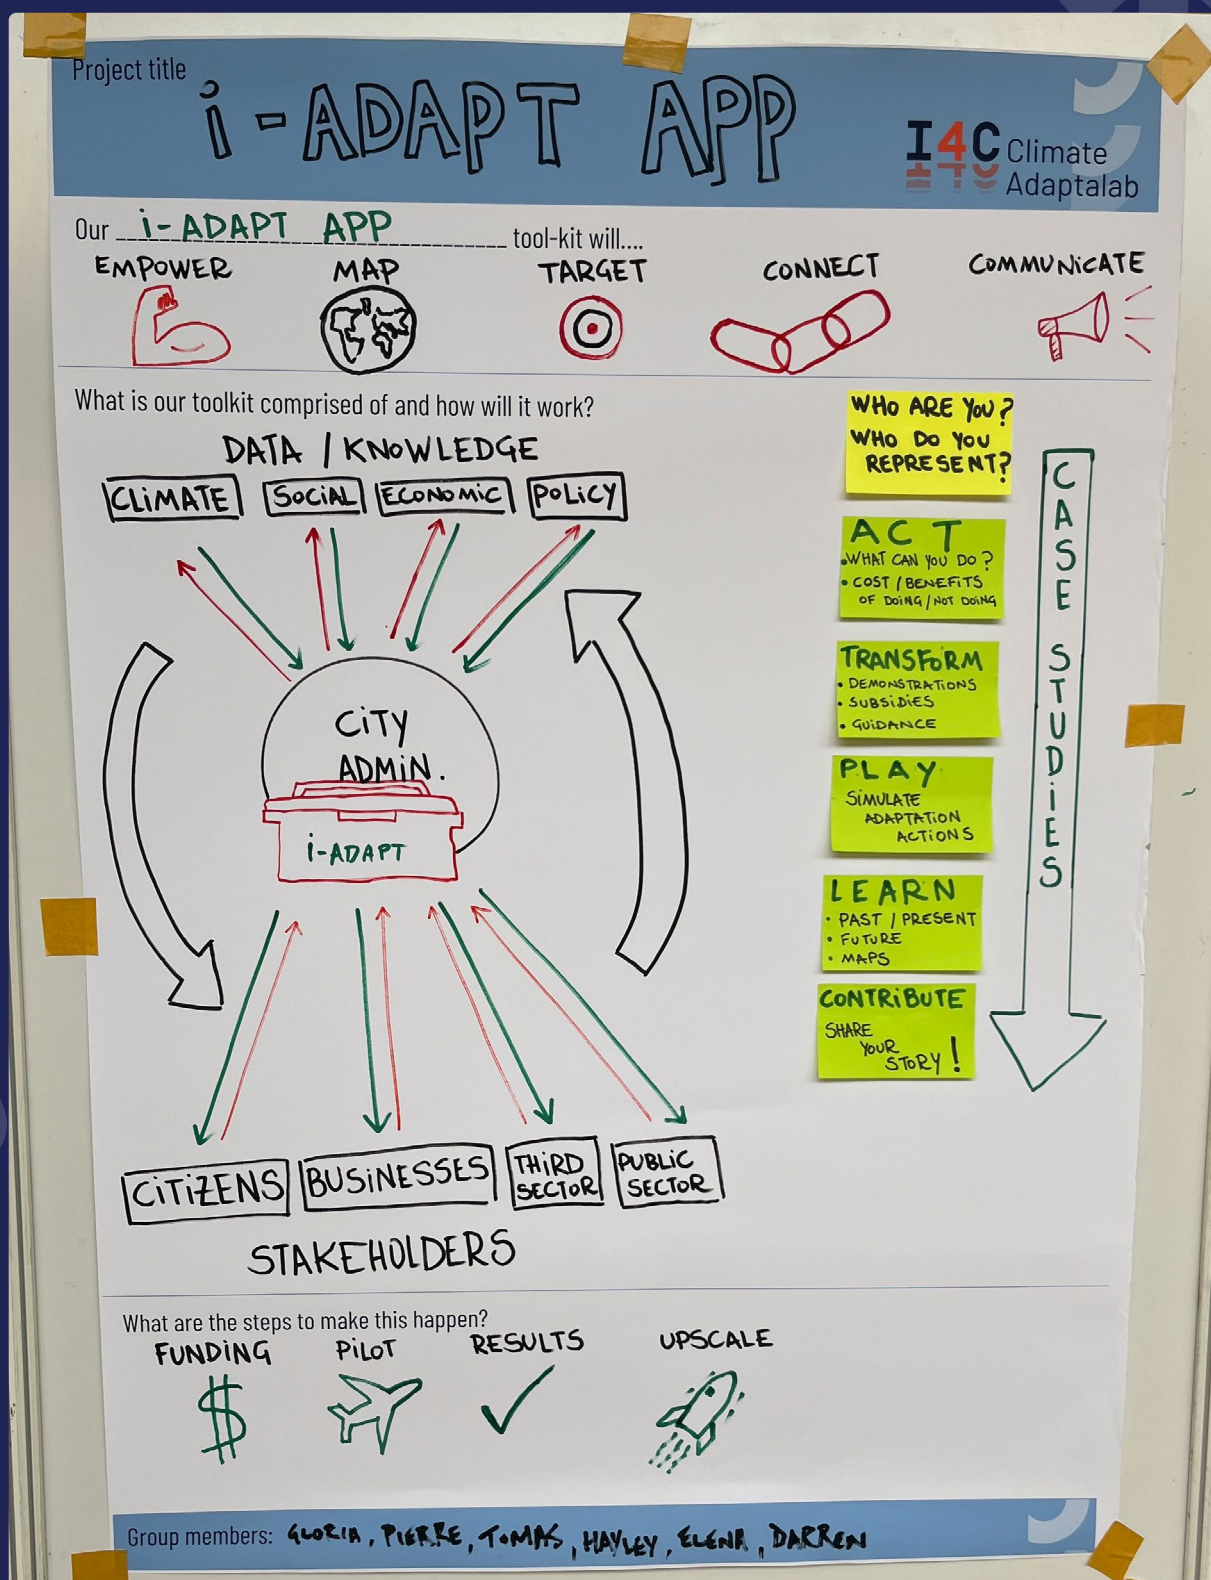 Project title
i-ADAPT APP
I4C Climate
Adaptalab
Our i-ADAPT APP tool-kit will....
EMPOWER MAP TARGET CONNECT COMMUNICATE
What is our toolkit comprised of and how will it work?
DATA / KNOWLEDGE
CLIMATE SOCIAL ECONOMIC POLICY
CITY
ADMIN.
i-ADAPT
CITIZENS BUSINESSES THIRD SECTOR PUBLIC SECTOR
STAKEHOLDERS
WHO ARE YOU?
WHO DO YOU
REPRESENT?
ACT
• WHAT CAN YOU DO?
• COST / BENEFITS
OF DOING / NOT DOING
TRANSFORM
• DEMONSTRATIONS
• SUBSIDIES
• GUIDANCE
PLAY
SIMULATE
ADAPTATION
ACTIONS
LEARN
• PAST / PRESENT
• FUTURE
• MAPS
CONTRIBUTE
SHARE
YOUR
STORY!
CASE STUDIES
What are the steps to make this happen?
FUNDING PILOT RESULTS UPSCALE
$
Group members: GLORIA, PIERRE, TOMAS, HAYLEY, ELENA, DARREN